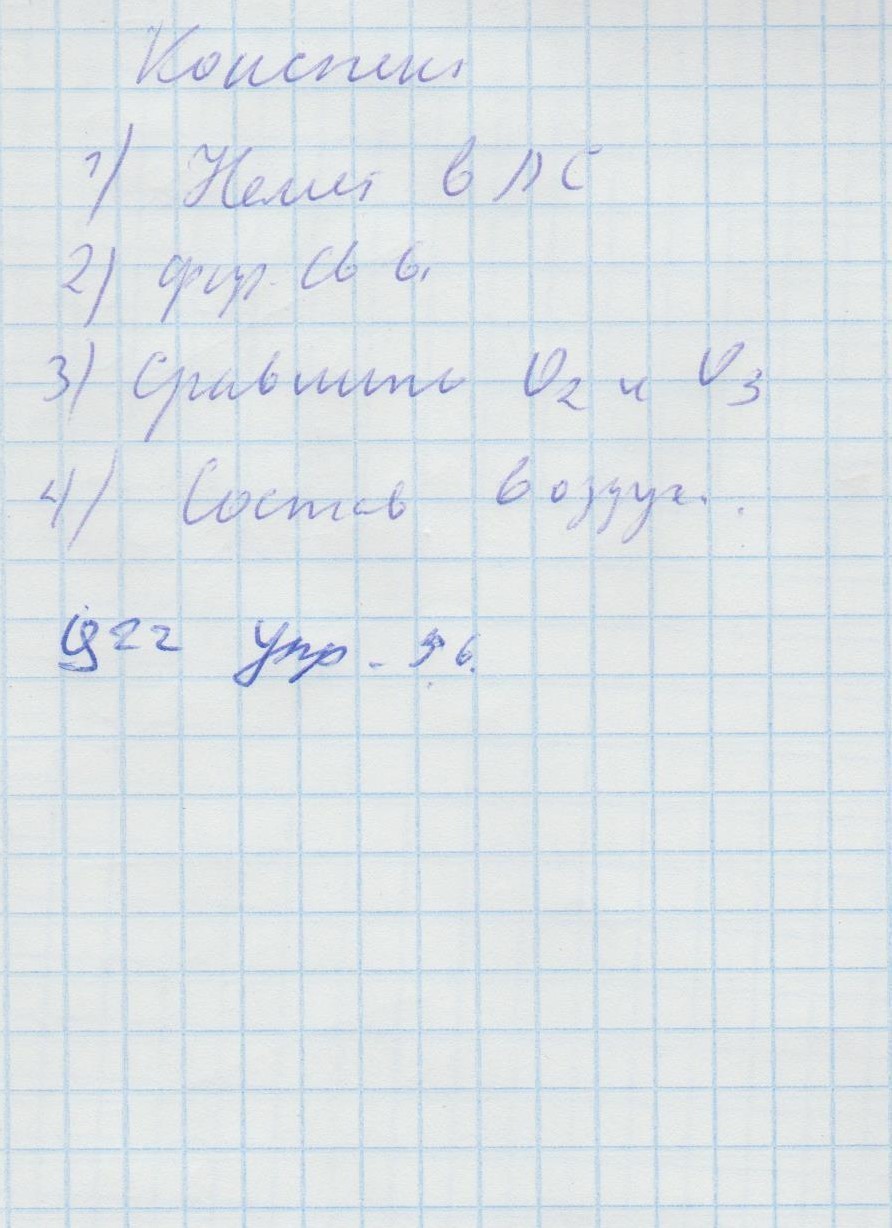 Конспект
1) Немет в ПС
2) физ. св в.
3) Сравнить O₂ и O₃
4) Состав воздух.
§22 Упр. 5 6.